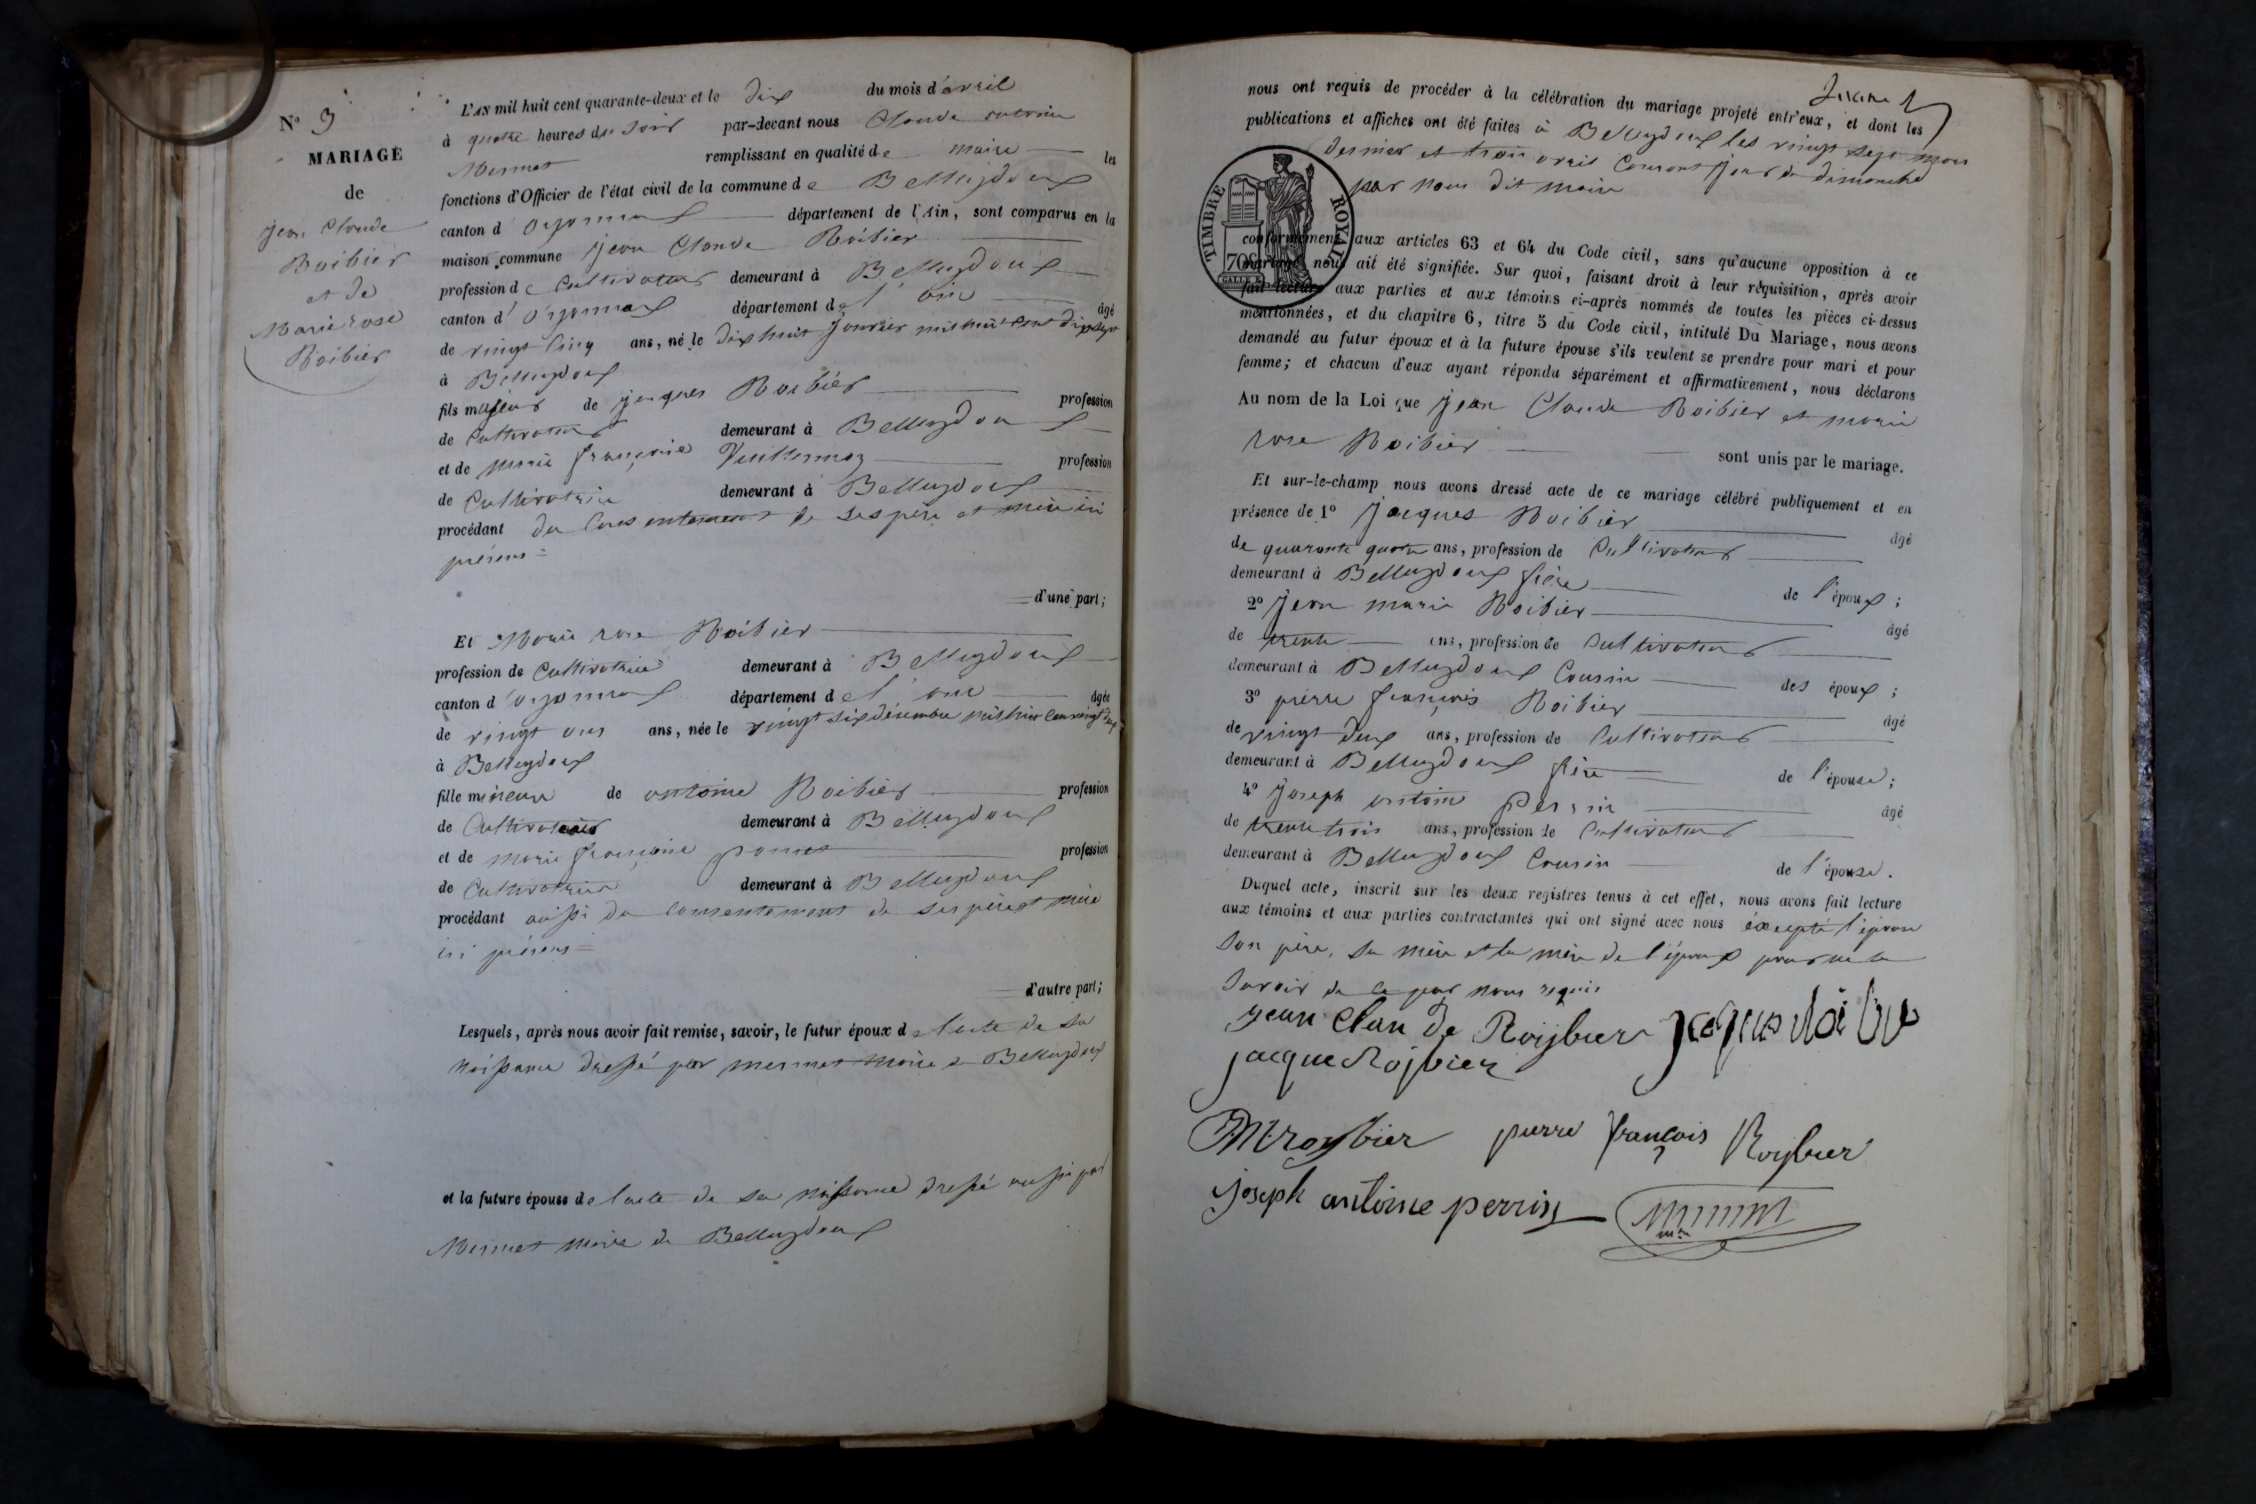 N° 9
MARIAGE
de
Jean Claude
Roibier
et de
Marie rose
Roibier
L'AN mil huit cent quarante-deux et le dix du mois d'avril
à quatre heures du soir par-devant nous Claude antoine
Mermet remplissant en qualité de maire les
fonctions d'Officier de l'état civil de la commune de Belleydoux
canton d'oyonnax département de l'Ain, sont comparus en la
maison commune Jean Claude Roibier
profession de Cultivateur demeurant à Belleydoux
canton d'oyonnax département de l'ain âgé
de vingt cinq ans, né le dix huit Janvier mil huit cent dix sept
à Belleydoux
fils majeur de jacques Roibier profession
de Cultivateur demeurant à Belleydoux
et de marie françoise Vuillermoz profession
de Cultivatrice demeurant à Belleydoux
procédant du Consentement de ses père et mère ici
présens =
d'une part;
Et Marie rose Roibier
profession de Cultivatrice demeurant à Belleydoux
canton d'oyonnax département de l'ain âgée
de vingt ans, née le vingt six décembre mil huit cent vingt
à Belleydoux
fille mineure de antoine Roibier profession
de Cultivateur demeurant à Belleydoux
et de marie françoise profession
de Cultivatrice demeurant à Belleydoux
procédant aussi du consentement de ses père et mère
ici présens =
d'autre part;
Lesquels, après nous avoir fait remise, savoir, le futur époux de l'acte de sa
naissance dressé par mermet maire de Belleydoux
et la future épouse de l'acte de sa naissance dressé aussi par
Mermet maire de Belleydoux
nous ont requis de procéder à la célébration du mariage projeté entr'eux, et dont les
publications et affiches ont été faites à Belleydoux les vingt sept mars
dernier et trois avril Courant jour de dimanche
par nous dit maire
TIMBRE ROYAL
70c
conformément aux articles 63 et 64 du Code civil, sans qu'aucune opposition à ce
mariage nous ait été signifiée. Sur quoi, faisant droit à leur réquisition, après avoir
fait lecture aux parties et aux témoins ci-après nommés de toutes les pièces ci-dessus
mentionnées, et du chapitre 6, titre 5 du Code civil, intitulé Du Mariage, nous avons
demandé au futur époux et à la future épouse s'ils veulent se prendre pour mari et pour
femme; et chacun d'eux ayant répondu séparément et affirmativement, nous déclarons
Au nom de la Loi que Jean Claude Roibier et marie
rose Roibier sont unis par le mariage.
Et sur-le-champ nous avons dressé acte de ce mariage célébré publiquement et en
présence de 1° Jacques Roibier âgé
de quarante quatre ans, profession de Cultivateur
demeurant à Belleydoux frère de l'époux;
2° Jean marie Roibier âgé
de trente ans, profession de Cultivateur
demeurant à Belleydoux Cousin des époux;
3° pierre françois Roibier âgé
de vingt deux ans, profession de Cultivateur
demeurant à Belleydoux frère de l'épouse;
4° Joseph antoine perrin âgé
de trente trois ans, profession de Cultivateur
demeurant à Belleydoux Cousin de l'épouse.
Duquel acte, inscrit sur les deux registres tenus à cet effet, nous avons fait lecture
aux témoins et aux parties contractantes qui ont signé avec nous éxcepté l'épouse
son père, sa mère et la mère de l'époux pour ne le
savoir de ce par nous requis
jean Clau de Roijbier
jacque Rojbier
JM roybier pierre françois Roijbier
joseph antoine perrin Mermet